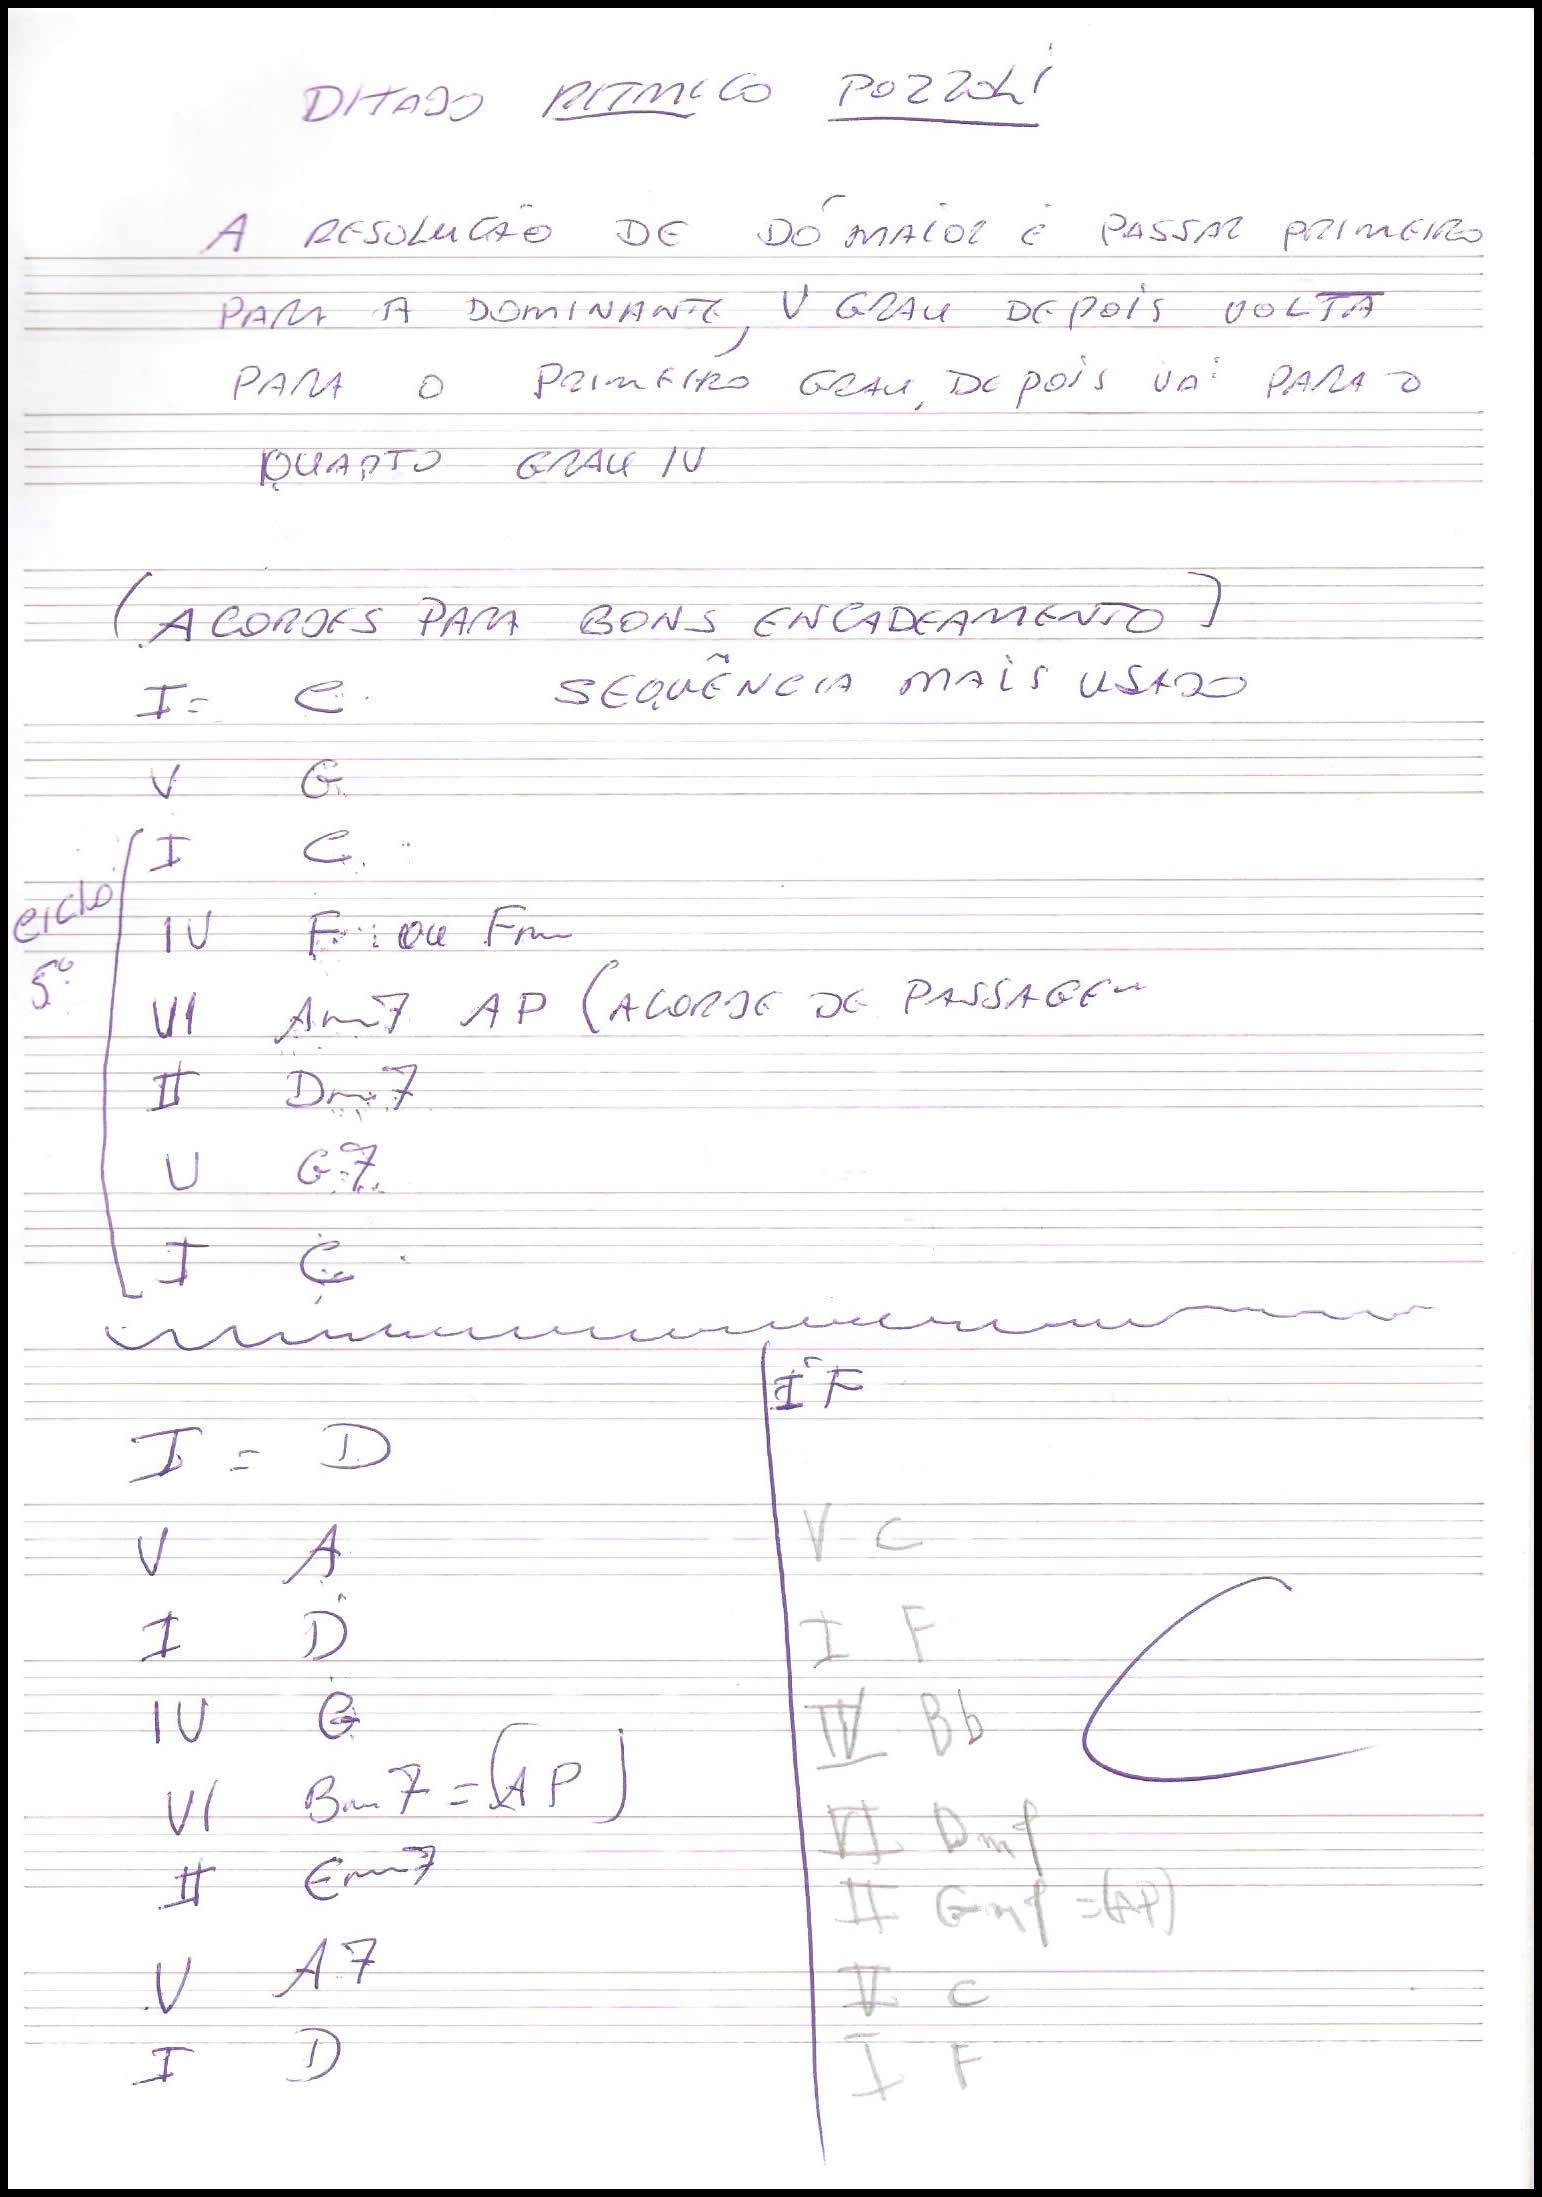 DITADO RITMICO POZZOLI
A RESOLUCÃO DE DÓ MAIOR É PASSAR PRIMEIRO
PARA A DOMINANTE, V GRAU DEPOIS VOLTA
PARA O PRIMEIRO GRAU, DEPOIS VAI PARA O
QUARTO GRAU IV
(ACORDES PARA BONS ENCADEAMENTO)
I= C SEQUÊNCIA MAIS USADO
V G
I C
ciclo
IV F ou Fm
5º
VI Am7 AP (ACORDE DE PASSAGEM
II Dm7
V G7
I C
I = D
V A
I D
IV G
VI Bm7 = (AP)
II Em7
V A7
I D
I F
V C
I F
IV Bb
VI Dm7
II Gm7 =(AP)
V C
I F
C